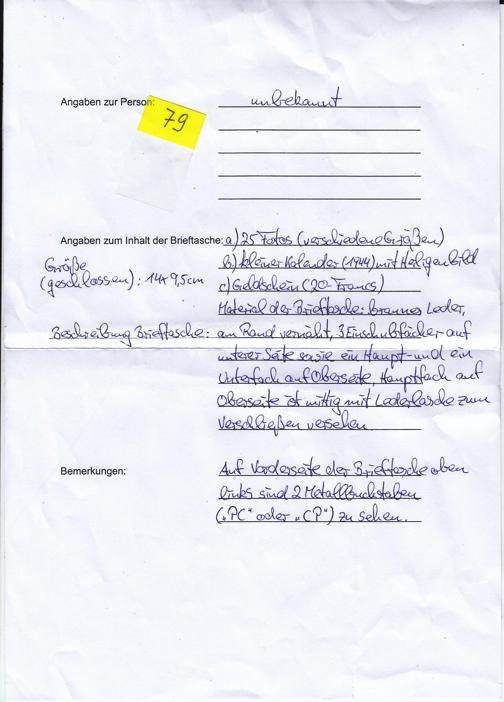 Angaben zur Person: unbekannt
79
Angaben zum Inhalt der Brieftasche: a) 25 Fotos (verschiedene Größen)
Größe
(geschlossen): 14x9,5cm
b) kleiner Kalender (1944) mit Heiligenbild
c) Geldschein (20-Francs)
Material der Brieftasche: braunes Leder,
Beschreibung Brieftasche: am Rand vernäht, 3 Einschubfächer auf
unterer Seite sowie ein Haupt- und ein
Unterfach auf Oberseite, Hauptfach auf
Oberseite ist mittig mit Lederlasche zum
Verschließen versehen.
Bemerkungen: Auf Vorderseite der Brieftasche oben
links sind 2 Metallbuchstaben
(„PC“ oder „CP“) zu sehen.